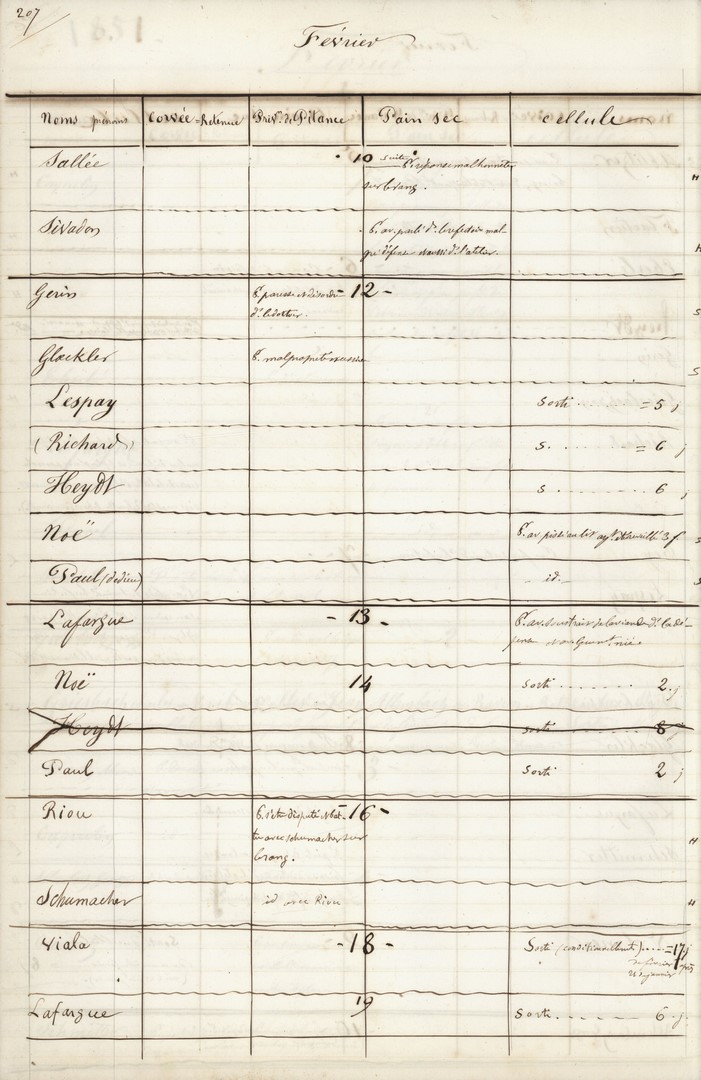 207
Février
Noms prénoms Corvée = Retenue Priv. de Pitance Pain sec Cellule
Sallée 10 suite P. réponse malhonnête
sur le rang.
Sivadon P. av. parlé d. le réfectoire mal-
gré défense et aussi d. l'atelier.
Gerin P. paresse et désordre - 12 -
d. le dortoir.
Glœckler P. malpropreté
Lespay Sorti = 5 j
(Richard) S. = 6 j
Heydt S 6 j
Noë P. av. 3 f.
Paul (dedieu) id.
Lafargue - 13 - P. av. soustrait de la viande d.
Noë 14 Sorti 2 j
Heydt sorti 8 j
Paul Sorti 2 j
Riou P. s'être disputé et bat- - 16 -
tu avec Schumacher sur
le rang.
Schumacher id avec Riou
Viala - 18 - Sorti (conditionellement) = 17 j
de février
Lafargue 19 Sorti 6 j.